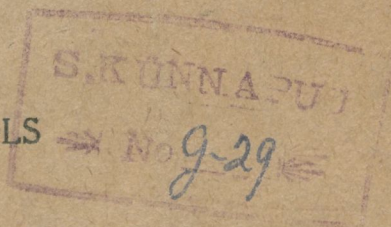 S.KUNNAPUU
LS
No g-29